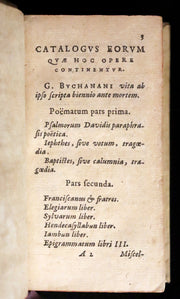 3
CATALOGVS EORVM
QVÆ HOC OPERE
CONTINENTVR.
G. BVCHANANI vita ab
ipso scripta biennio ante mortem.
Poëmatum pars prima.
Psalmorum Davidis paraphra-
sis poëtica.
Iephthes, sive votum, tragœ-
dia.
Baptistes, sive calumnia, tra-
gœdia.
Pars secunda.
Franciscanus & fratres.
Elegiarum liber.
Sylvarum liber.
Hendecasyllabωn liber.
Iambωn liber.
Epigrammatum libri III.
A 2 Miscel-